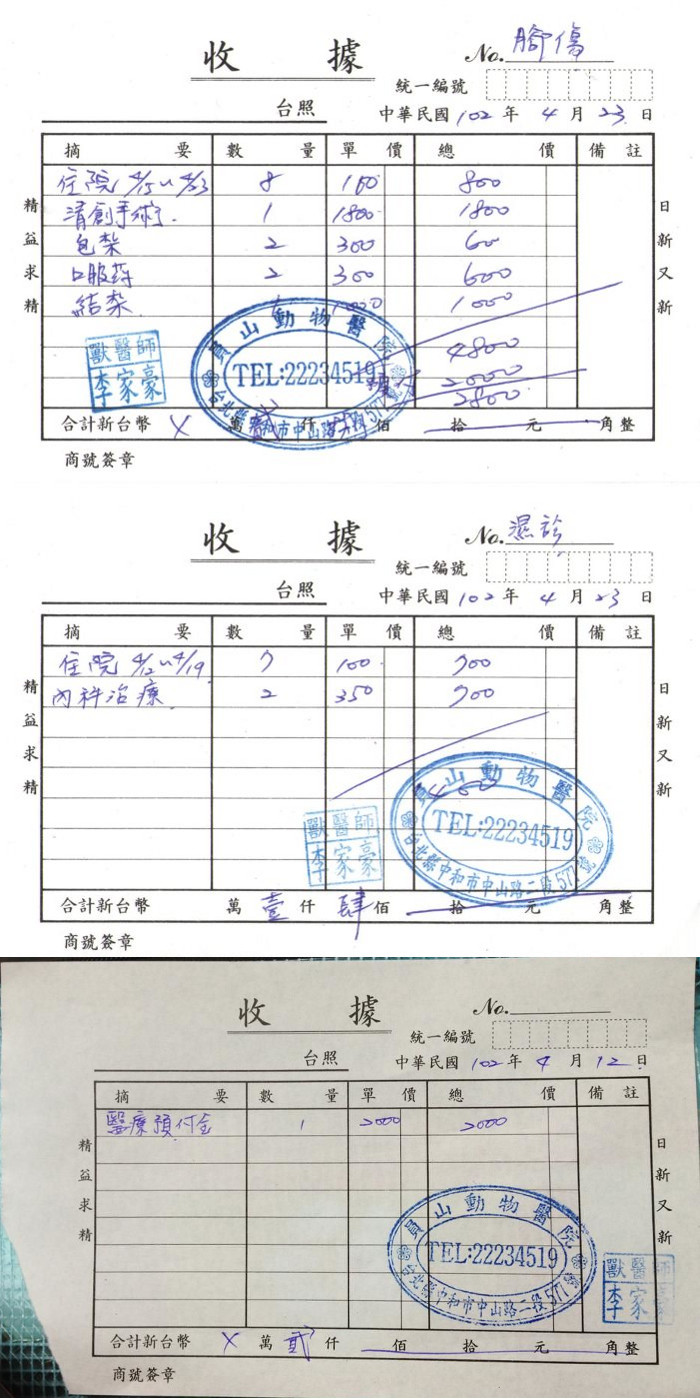 收 據
No. 腳傷
統一編號
台照
中華民國 102 年 4 月 23 日
摘 要 數 量 單 價 總 價 備 註
住院 4/15~4/23 8 100 800
清創手術 1 1800 1800
包紮 2 300 600
口服葯 2 300 600
結紮 1 1000 1000
4800
2000
2800
精益求精
日新又新
獸醫師
李家豪
員山動物醫院
TEL:22234519
台北縣中和市中山路二段577號
合計新台幣 X 萬 貳 仟 佰 拾 元 角整
商號簽章
收 據
No. 濕疹
統一編號
台照
中華民國 102 年 4 月 23 日
摘 要 數 量 單 價 總 價 備 註
住院 4/12~4/19 7 100 700
內科治療 2 350 700
精益求精
日新又新
獸醫師
李家豪
員山動物醫院
TEL:22234519
台北縣中和市中山路二段577號
合計新台幣 萬 壹 仟 肆 佰 拾 元 角整
商號簽章
收 據
No.
統一編號
台照
中華民國 102 年 4 月 12 日
摘 要 數 量 單 價 總 價 備 註
醫療預付金 1 2000 2000
精益求精
日新又新
員山動物醫院
TEL:22234519
台北縣中和市中山路二段577號
獸醫師
李家豪
合計新台幣 X 萬 貳 仟 佰 拾 元 角整
商號簽章